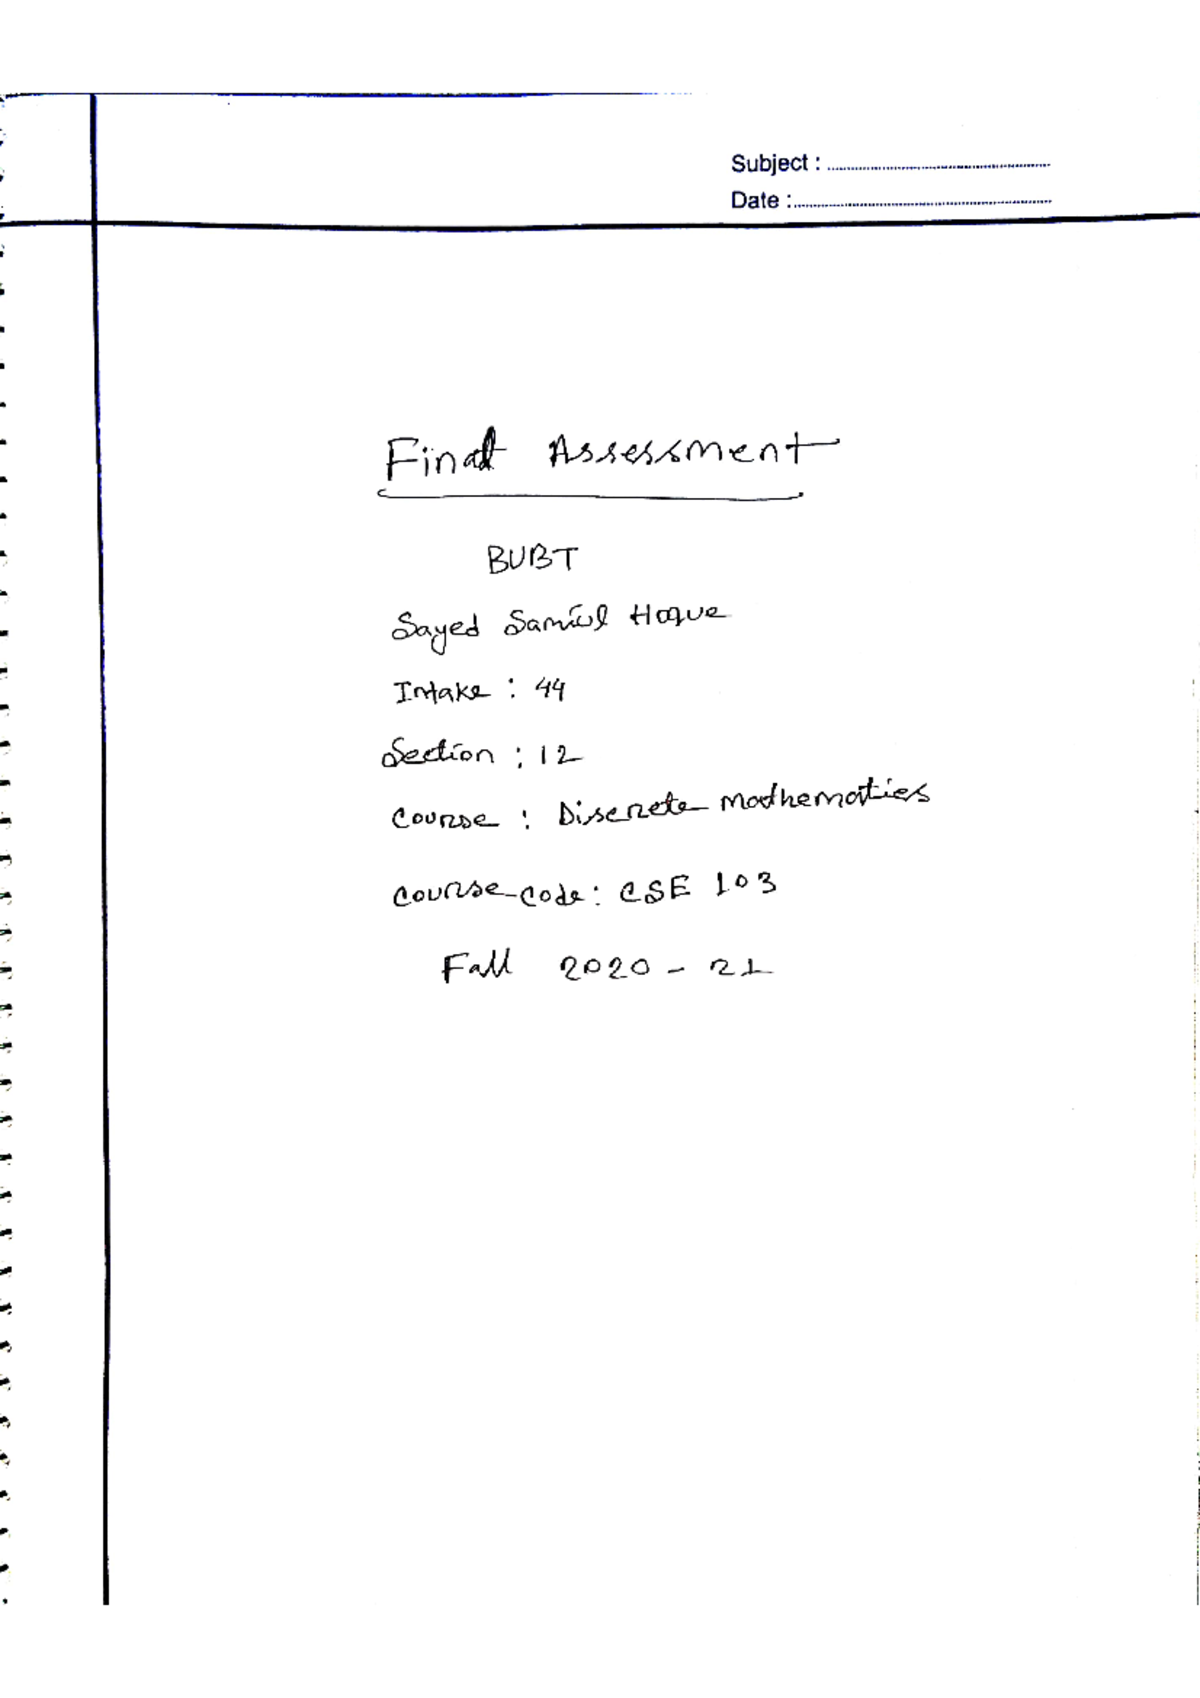 Subject : ................................................
Date :................................................
Final Assessment
BUBT
Sayed Samiul Hoque
Intake : 44
Section : 12
Course : Discrete mathematics
Course-code: CSE 103
Fall 2020 - 21